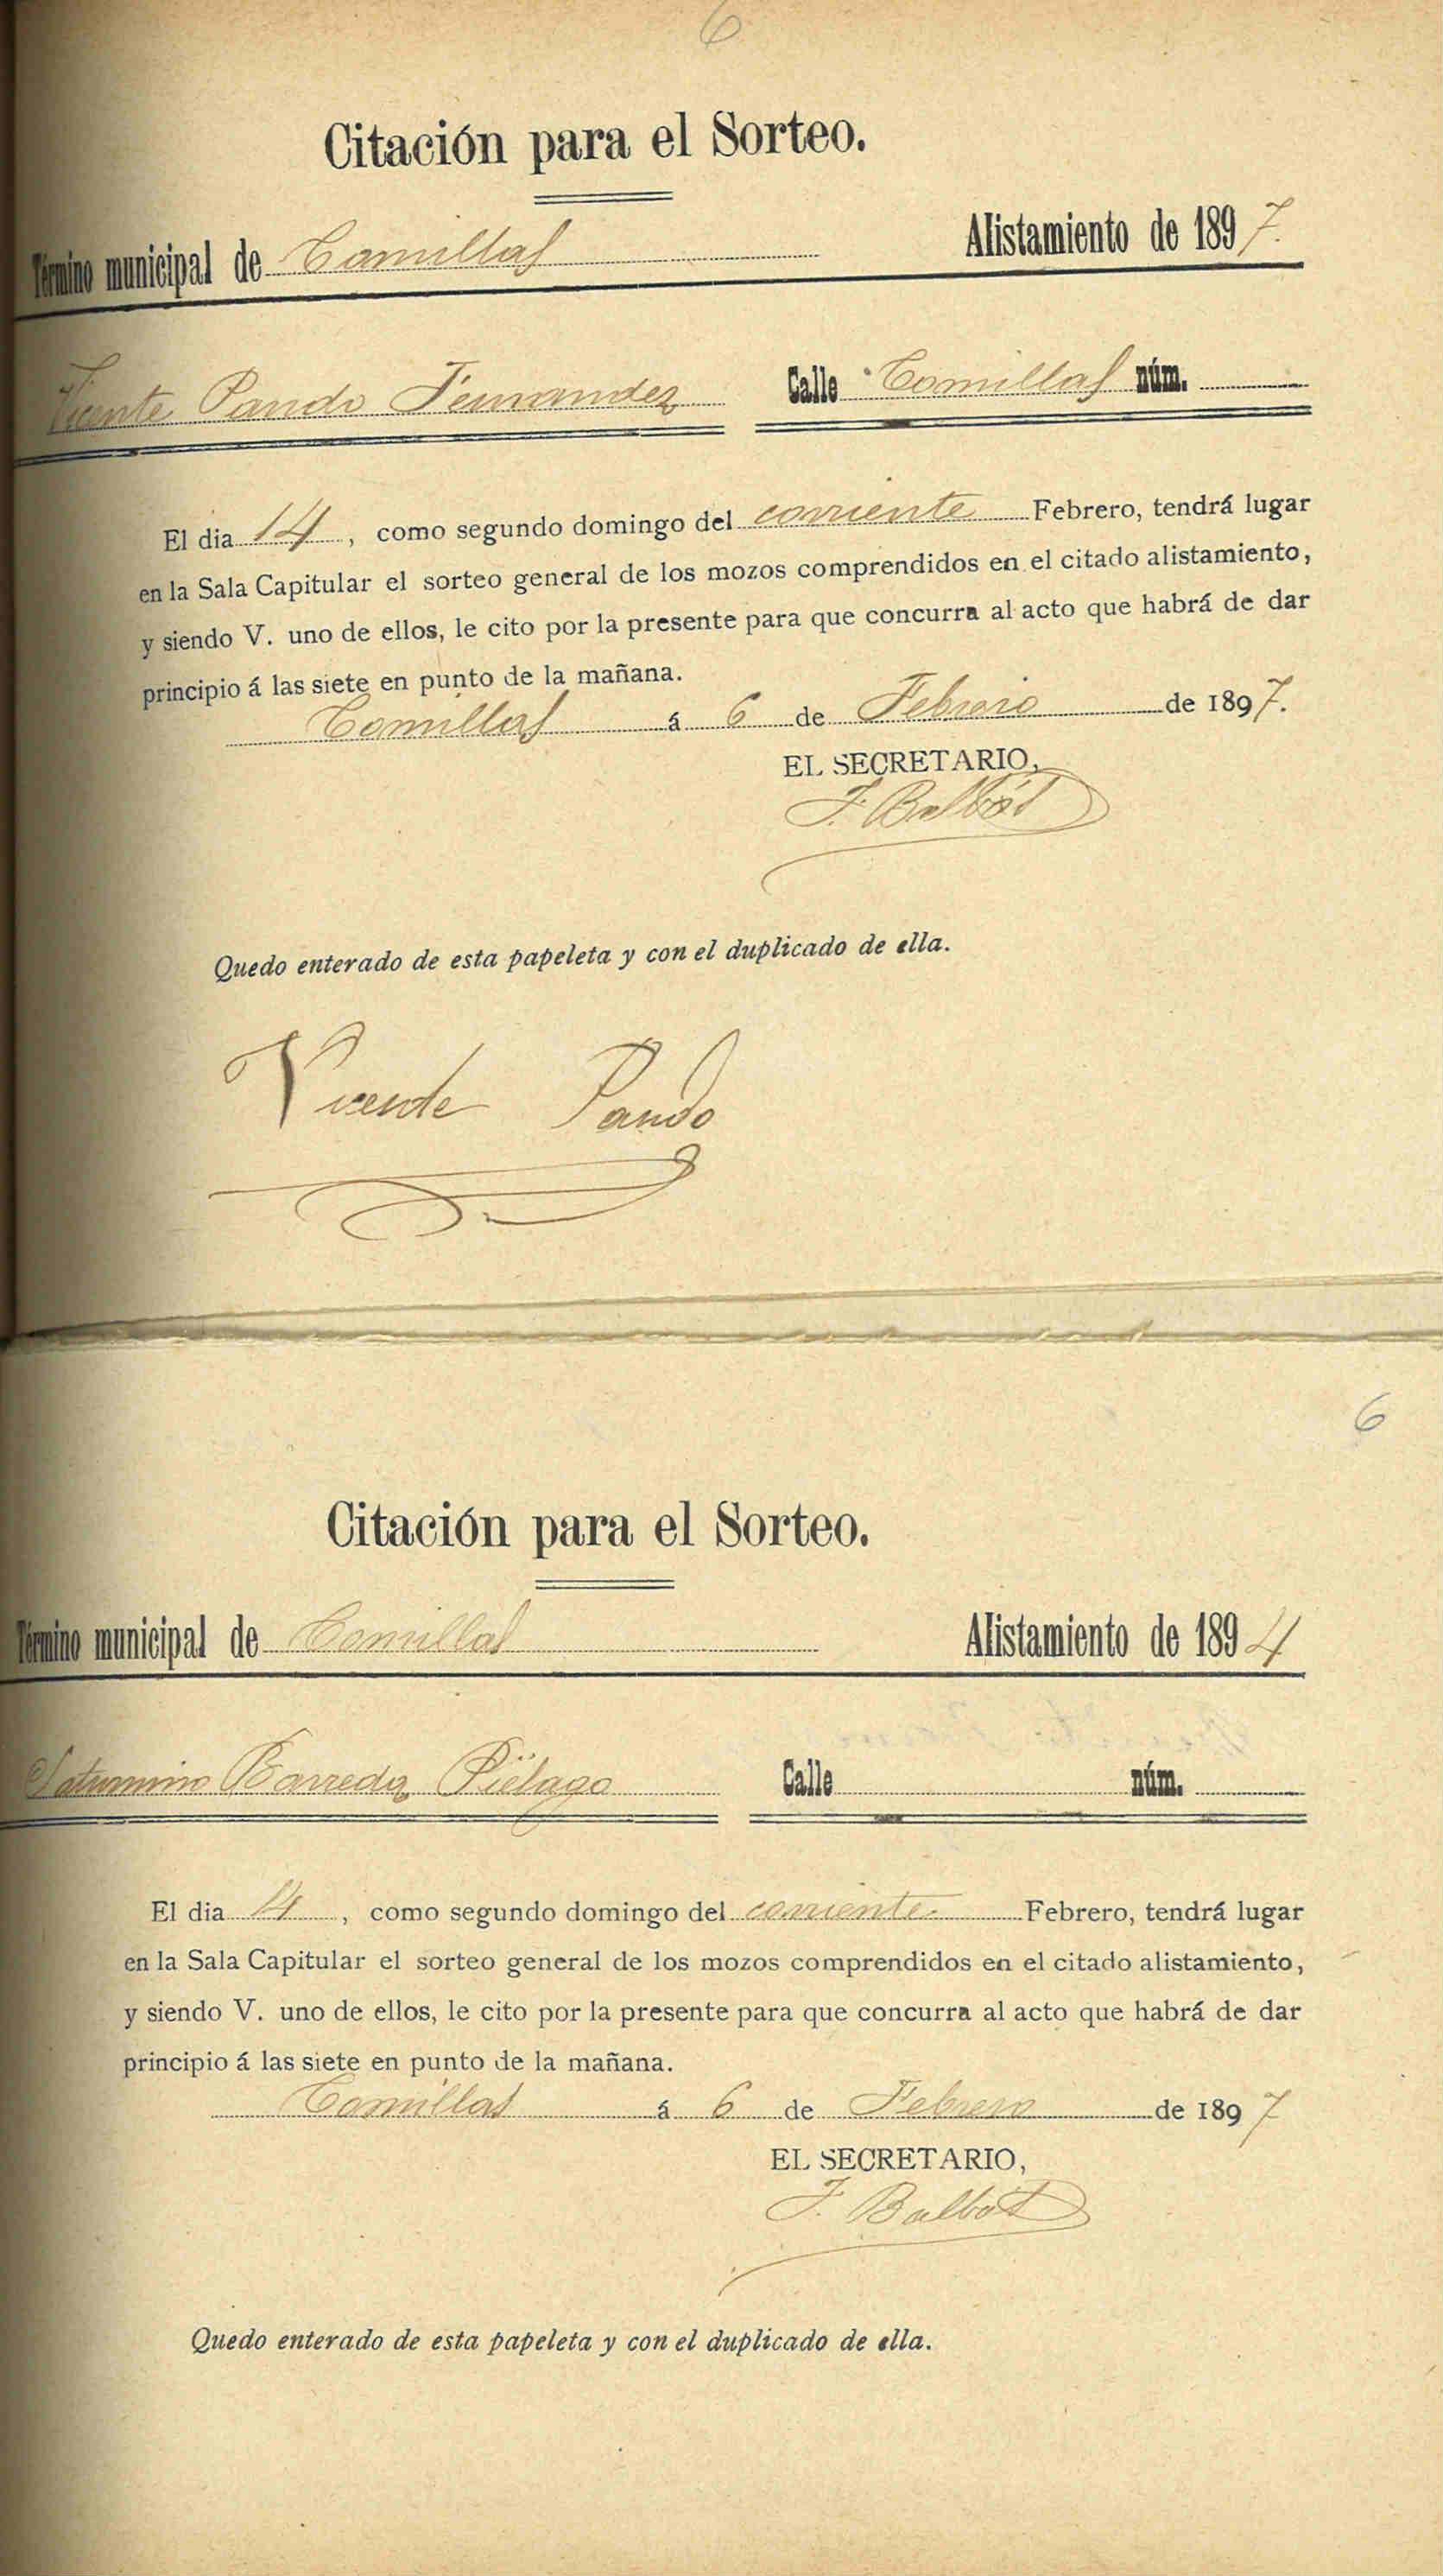 6
Citación para el Sorteo.
Término municipal de Comillas Alistamiento de 1897.
Vicente Pando Fernandez Calle Comillas núm.
El dia 14, como segundo domingo del corriente Febrero, tendrá lugar
en la Sala Capitular el sorteo general de los mozos comprendidos en el citado alistamiento,
y siendo V. uno de ellos, le cito por la presente para que concurra al acto que habrá de dar
principio á las siete en punto de la mañana.
Comillas á 6 de Febrero de 1897.
EL SECRETARIO,
F. Balbás
Quedo enterado de esta papeleta y con el duplicado de ella.
Vicente Pando
6
Citación para el Sorteo.
Término municipal de Comillas Alistamiento de 1894
Saturnino Barreda Piélago Calle núm.
El dia 14, como segundo domingo del corriente Febrero, tendrá lugar
en la Sala Capitular el sorteo general de los mozos comprendidos en el citado alistamiento,
y siendo V. uno de ellos, le cito por la presente para que concurra al acto que habrá de dar
principio á las siete en punto de la mañana.
Comillas á 6 de Febrero de 1897
EL SECRETARIO,
F. Balbás
Quedo enterado de esta papeleta y con el duplicado de ella.